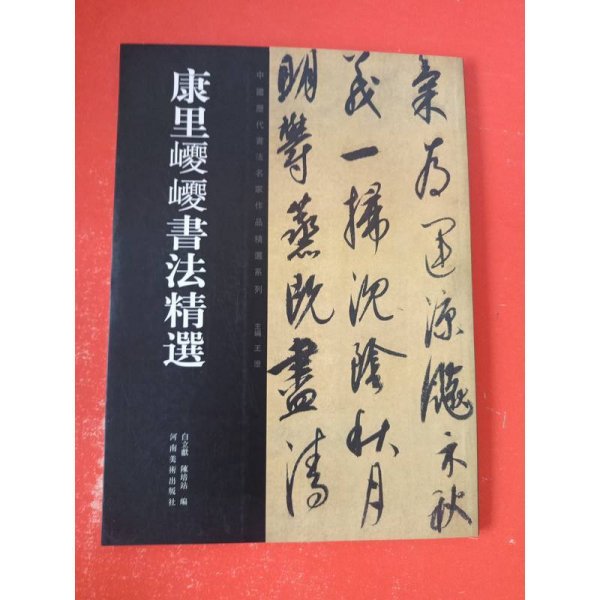 氣為運涼飈不秋
義一掃沉陰秋月
明鬱蒸既盡清
中國歷代書法名家作品精選系列 主編 王澄
康里巎巎書法精選
白立獻 陳培站 編
河南美術出版社